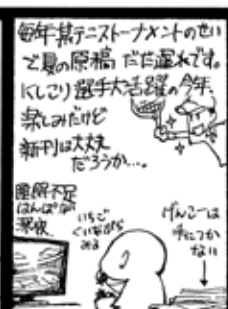 毎年某テニストーナメントのせい
で夏の原稿だだ遅れです。
にしこり選手大活躍の今年、
楽しみだけど
新刊は大丈夫
だろうか…。
睡眠不足
はんぱない
深夜
いちご
くいながら
みる
げんこーは
手につか
ない